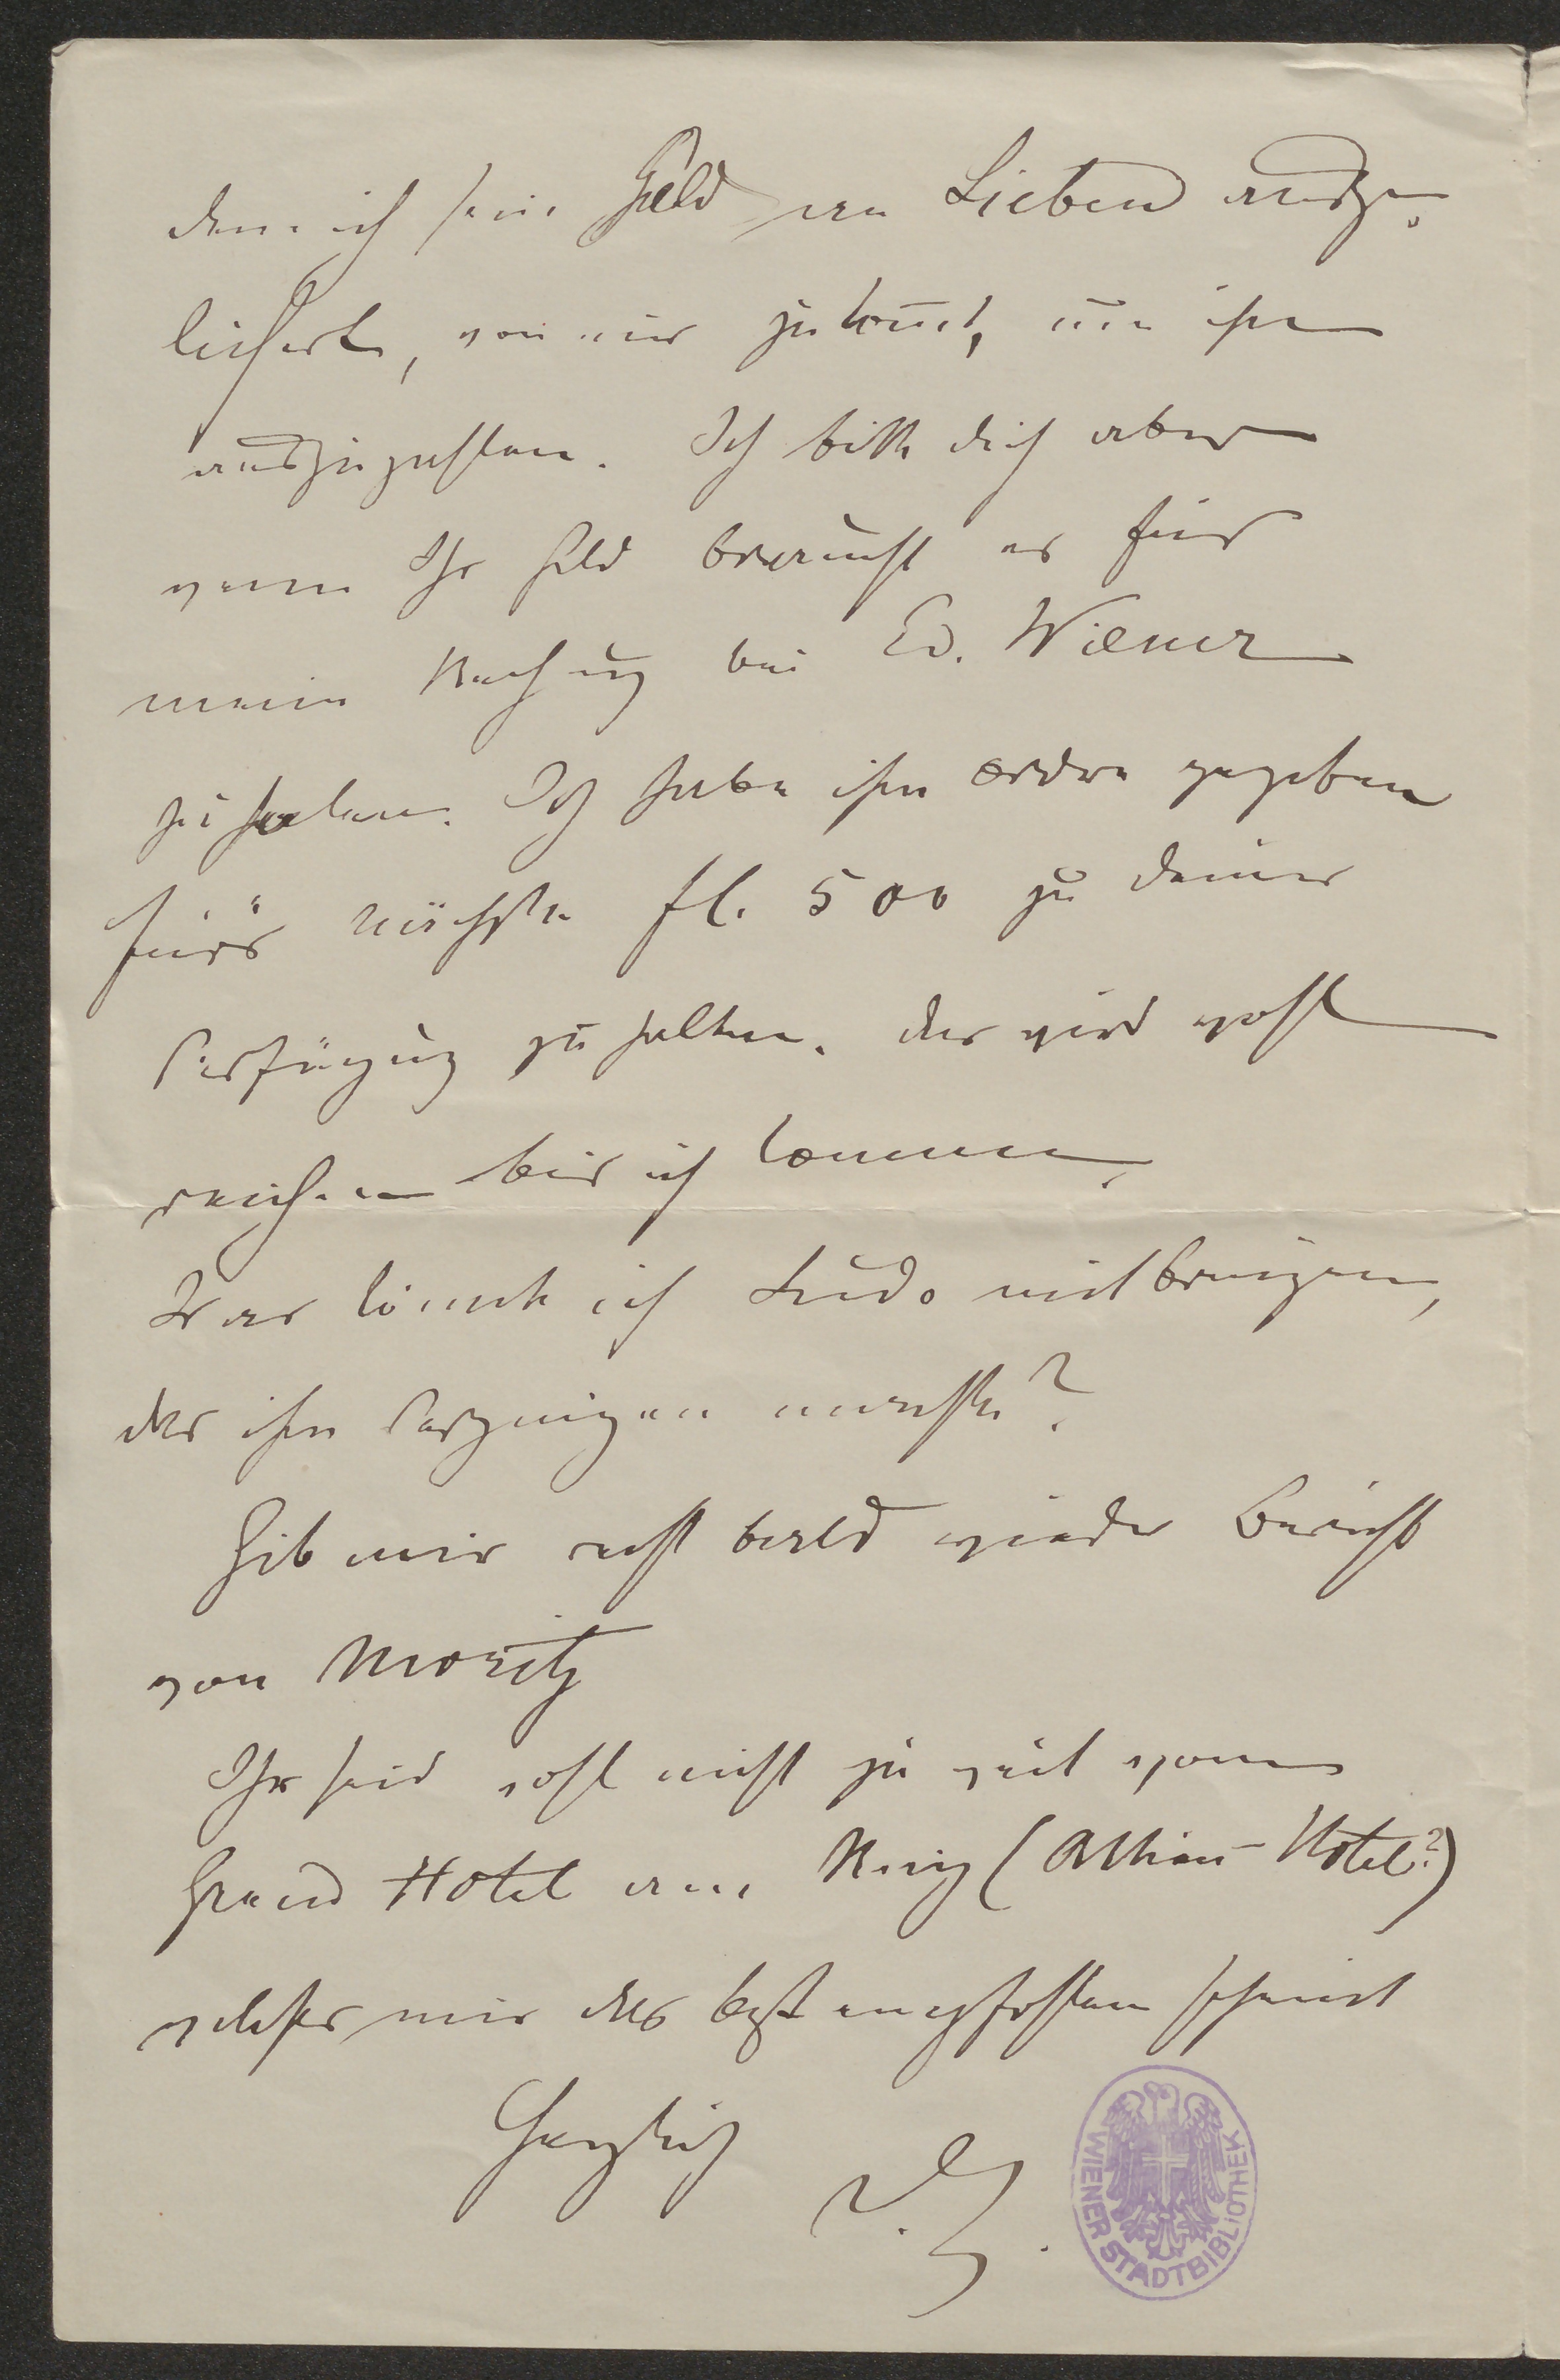 dem ich sein Geld an Lieben ausge-
lieferte, von mir zukomt, um ihn
auszuzahlen. Ich bitte dich aber
wenn Ihr Geld braucht es für
meine Rechnung bei Ed. Wiener
zu holen. Ich habe ihm Ordre gegeben
für's nächste fl. 500 zu deiner
Verfügung zu halten. das wird wohl
reichen bis ich komme.
Was könnte ich Ludo mitbringen,
das ihm Vergnügen machte?
Gib mir recht bald wieder Bericht
von Moritz
Ihr seid wohl nicht zu weit vom
Grand Hotel am Ring (Actien-Hotel?)
welches mir das best empfohlene scheint
Herzlich
WIENER STADTBIBLIOTHEK